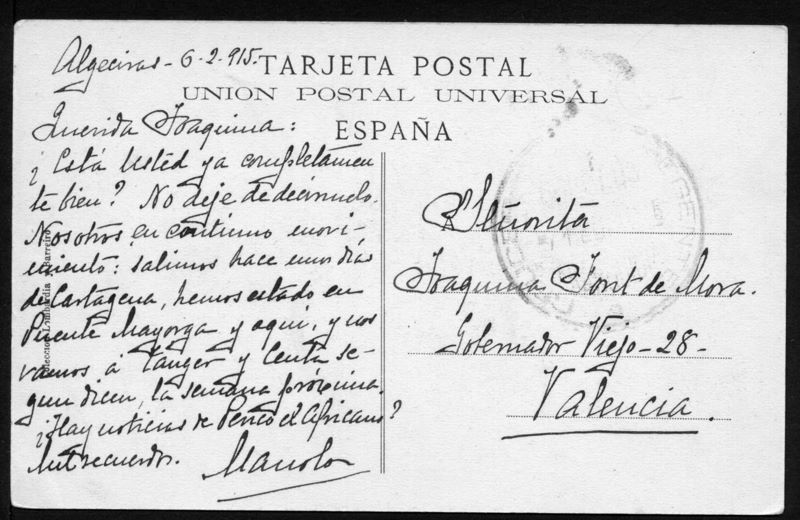 Algeciras - 6-2-915.
TARJETA POSTAL
UNION POSTAL UNIVERSAL
ESPAÑA
Querida Joaquina:
¿Está Usted ya completamen
te bien? No deje de decírnoslo.
Nosotros en continuo movi-
miento: salimos hace unos días
de Cartagena, hemos estado en
Puente Mayorga y aquí, y nos
vamos á Tanger y Ceuta se-
gun dicen, la semana próxima.
¿Hay noticias de Perico el Africano?
Mil recuerdos.
Manolo
Señorita
Joaquina Font de Mora.
Gobernador Viejo - 28 -
Valencia.